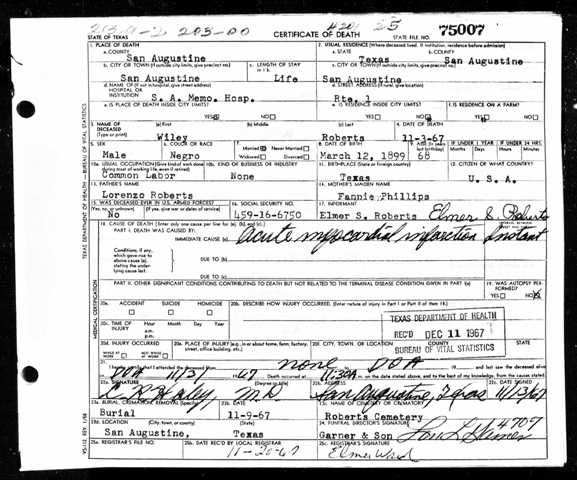 203-00
STATE OF TEXAS CERTIFICATE OF DEATH STATE FILE NO. 75007
1. PLACE OF DEATH 2. USUAL RESIDENCE (Where deceased lived. If institution, residence before admission)
a. COUNTY San Augustine a. STATE Texas b. COUNTY San Augustine
b. CITY OR TOWN (If outside city limits, give precinct no.) San Augustine c. LENGTH OF STAY in 1 b. Life c. CITY OR TOWN (If outside city limits, give precinct no.) San Augustine
d. NAME OF HOSPITAL OR INSTITUTION (If not in hospital, give street address) S. A. Memo. Hosp. d. STREET ADDRESS (If rural, give location) Rte. 1
e. IS PLACE OF DEATH INSIDE CITY LIMITS? YES NO e. IS RESIDENCE INSIDE CITY LIMITS? YES NO f. IS RESIDENCE ON A FARM? YES NO
3. NAME OF DECEASED (Type or print) (a) First Wiley (b) Middle (c) Last Roberts 4. DATE OF DEATH 11-3-67
5. SEX Male 6. COLOR OR RACE Negro 7. Married Never Married Widowed Divorced 8. DATE OF BIRTH March 12, 1899 9. AGE (In years last birthday) 68 IF UNDER 1 YEAR Months Days IF UNDER 24 HRS. Hours Min.
10a. USUAL OCCUPATION (Give kind of work done during most of working life, even if retired) Common Labor 10b. KIND OF BUSINESS OR INDUSTRY None 11. BIRTHPLACE (State or foreign country) Texas 12. CITIZEN OF WHAT COUNTRY? U. S. A.
13. FATHER'S NAME Lorenzo Roberts 14. MOTHER'S MAIDEN NAME Fannie Phillips
15. WAS DECEASED EVER IN U.S. ARMED FORCES? (If yes, give war or dates of service) No 16. SOCIAL SECURITY NO. 459-16-6750 17. INFORMANT Elmer S. Roberts Elmer S. Roberts
18. CAUSE OF DEATH [Enter only one cause per line for (a), (b), and (c).]
PART I. DEATH WAS CAUSED BY:
IMMEDIATE CAUSE (a) Acute myocardial infarction Instant
Conditions, if any, which gave rise to above cause (a), stating the underlying cause last.
DUE TO (b)
DUE TO (c)
PART II. OTHER SIGNIFICANT CONDITIONS CONTRIBUTING TO DEATH BUT NOT RELATED TO THE TERMINAL DISEASE CONDITION GIVEN IN PART I (a) 19. WAS AUTOPSY PERFORMED? YES NO
20a. ACCIDENT SUICIDE HOMICIDE 20b. DESCRIBE HOW INJURY OCCURRED. (Enter nature of injury in Part I or Part II of item 18.)
20c. TIME OF INJURY Hour Month Day Year a.m. p.m.
TEXAS DEPARTMENT OF HEALTH
REC'D DEC 11 1967
BUREAU OF VITAL STATISTICS
20d. INJURY OCCURRED WHILE AT WORK NOT WHILE AT WORK 20e. PLACE OF INJURY (e.g., in or about home, farm, factory, street, office building, etc.) 20f. CITY, TOWN, OR LOCATION COUNTY STATE
21. I hereby certify that I attended the deceased from none DOA 19 I last saw the deceased alive
DOA 11/3/ 67 Death occurred at 11:30A m. on the date stated above, and to the best of my knowledge, from the causes stated.
22a. SIGNATURE (Degree or title) M.D. 22b. ADDRESS San Augustine, Texas 22c. DATE SIGNED 11/13/67
23a. BURIAL, CREMATION, REMOVAL (Specify) Burial 23b. DATE 11-9-67 23c. NAME OF CEMETERY OR CREMATORY Roberts Cemetery
23d. LOCATION (City, town, or county) (State) San Augustine, Texas 24. FUNERAL DIRECTOR'S SIGNATURE Garner & Son 4707
25a. REGISTRAR'S FILE NO. 25b. DATE REC'D BY LOCAL REGISTRAR 11-20-67 25c. REGISTRAR'S SIGNATURE Elmer Ward
TEXAS DEPARTMENT OF HEALTH — BUREAU OF VITAL STATISTICS
MEDICAL CERTIFICATION